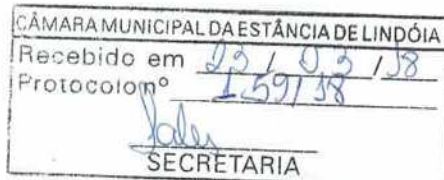 CÂMARA MUNICIPAL DA ESTÂNCIA DE LINDÓIA
Recebido em 23 / 03 / 18
Protocolo nº 159/18
SECRETARIA